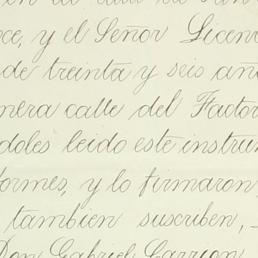 oce, y el Señor Licen
de treinta y seis añ
mera calle del Factor
doles leido este instru
formes, y lo firmaron
tambien suscriben,
Don Gabriel Carrion